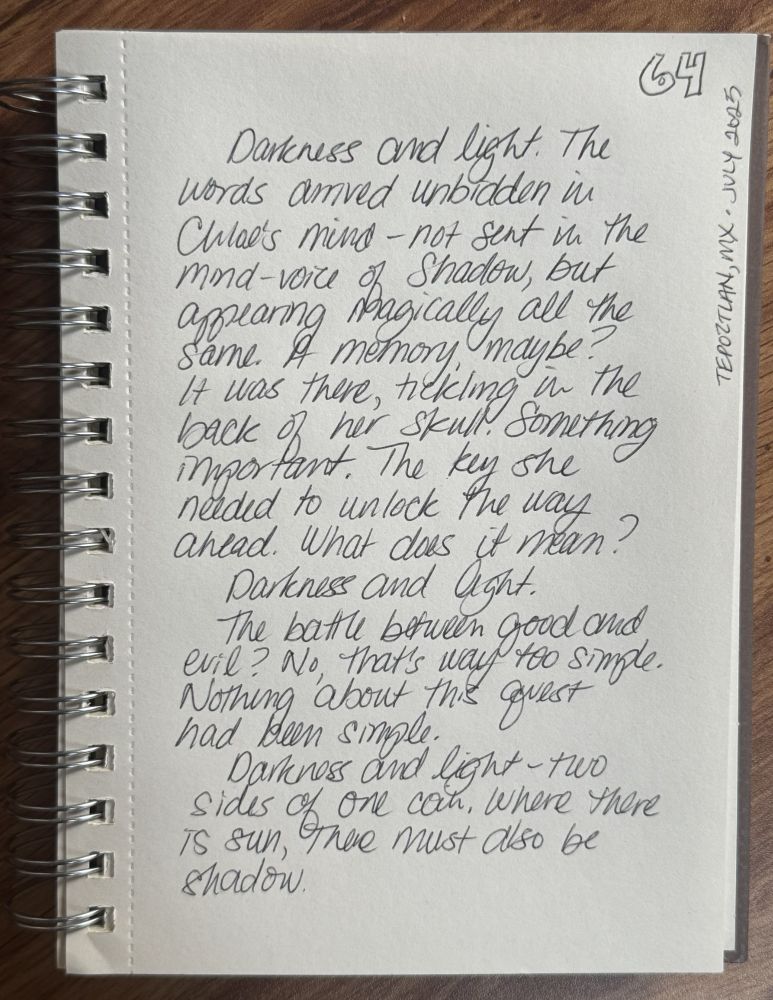 64
TEPOZTLAN, MX • JULY 2025
Darkness and light. The
words arrived unbidden in
Chloe's mind – not sent in the
mind-voice of Shadow, but
appearing magically all the
same. A memory, maybe?
It was there, tickling in the
back of her skull. Something
important. The key she
needed to unlock the way
ahead. What does it mean?
Darkness and light.
The battle between good and
evil? No, that's way too simple.
Nothing about this quest
had been simple.
Darkness and light – two
sides of one coin. Where there
is sun, there must also be
shadow.